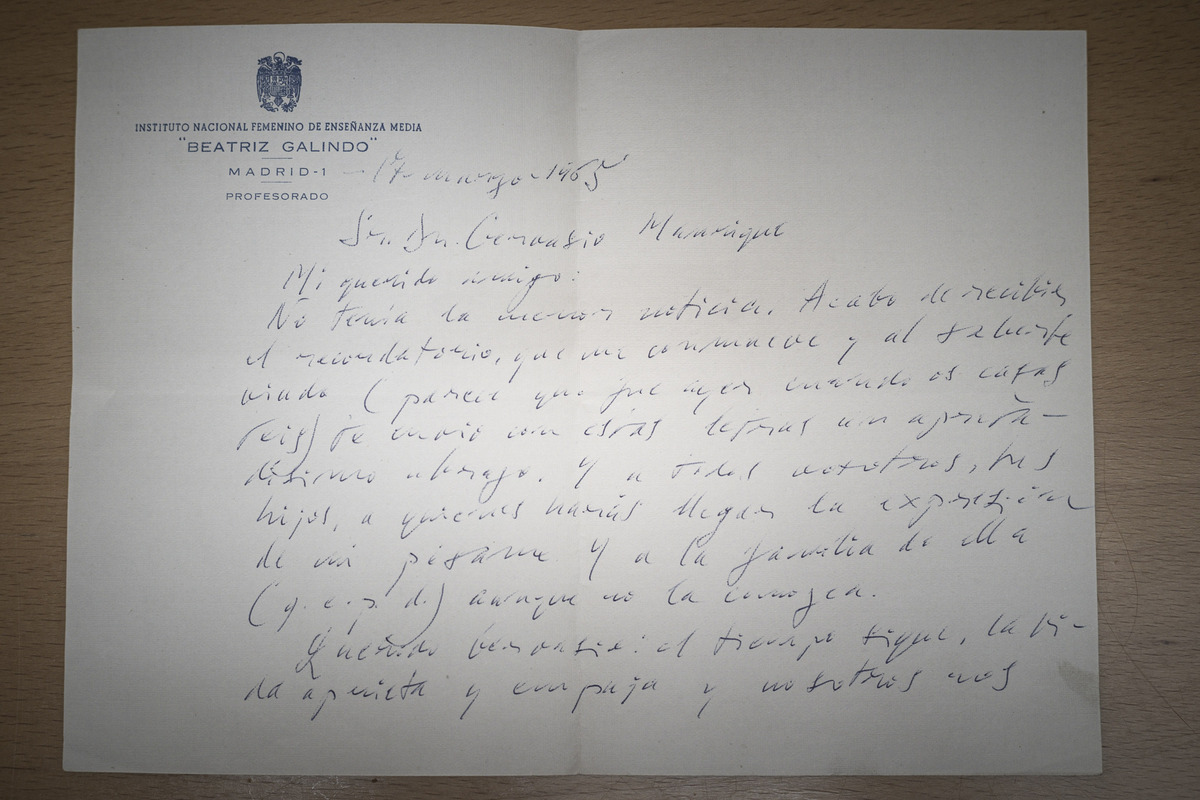 INSTITUTO NACIONAL FEMENINO DE ENSEÑANZA MEDIA
"BEATRIZ GALINDO"
MADRID-1 - 17 marzo - 1965
PROFESORADO
Sr. Dn. Gervasio Manrique
Mi querido amigo:
No tenía la menor noticia. Acabo de recibir
el recordatorio, que me conmueve y al saberte
viudo (parece que fue ayer cuando os casas
teis) te envio con estas letras un apreta-
dísimo abrazo. Y a todos vosotros, tus
hijos, a quienes harás llegar la expresión
de mi pésame. Y a la familia de ella
(q. e. p. d.) aunque no la conozca.
Querido Gervasio: el tiempo sigue, la vi-
da aprieta y empuja y nosotros nos